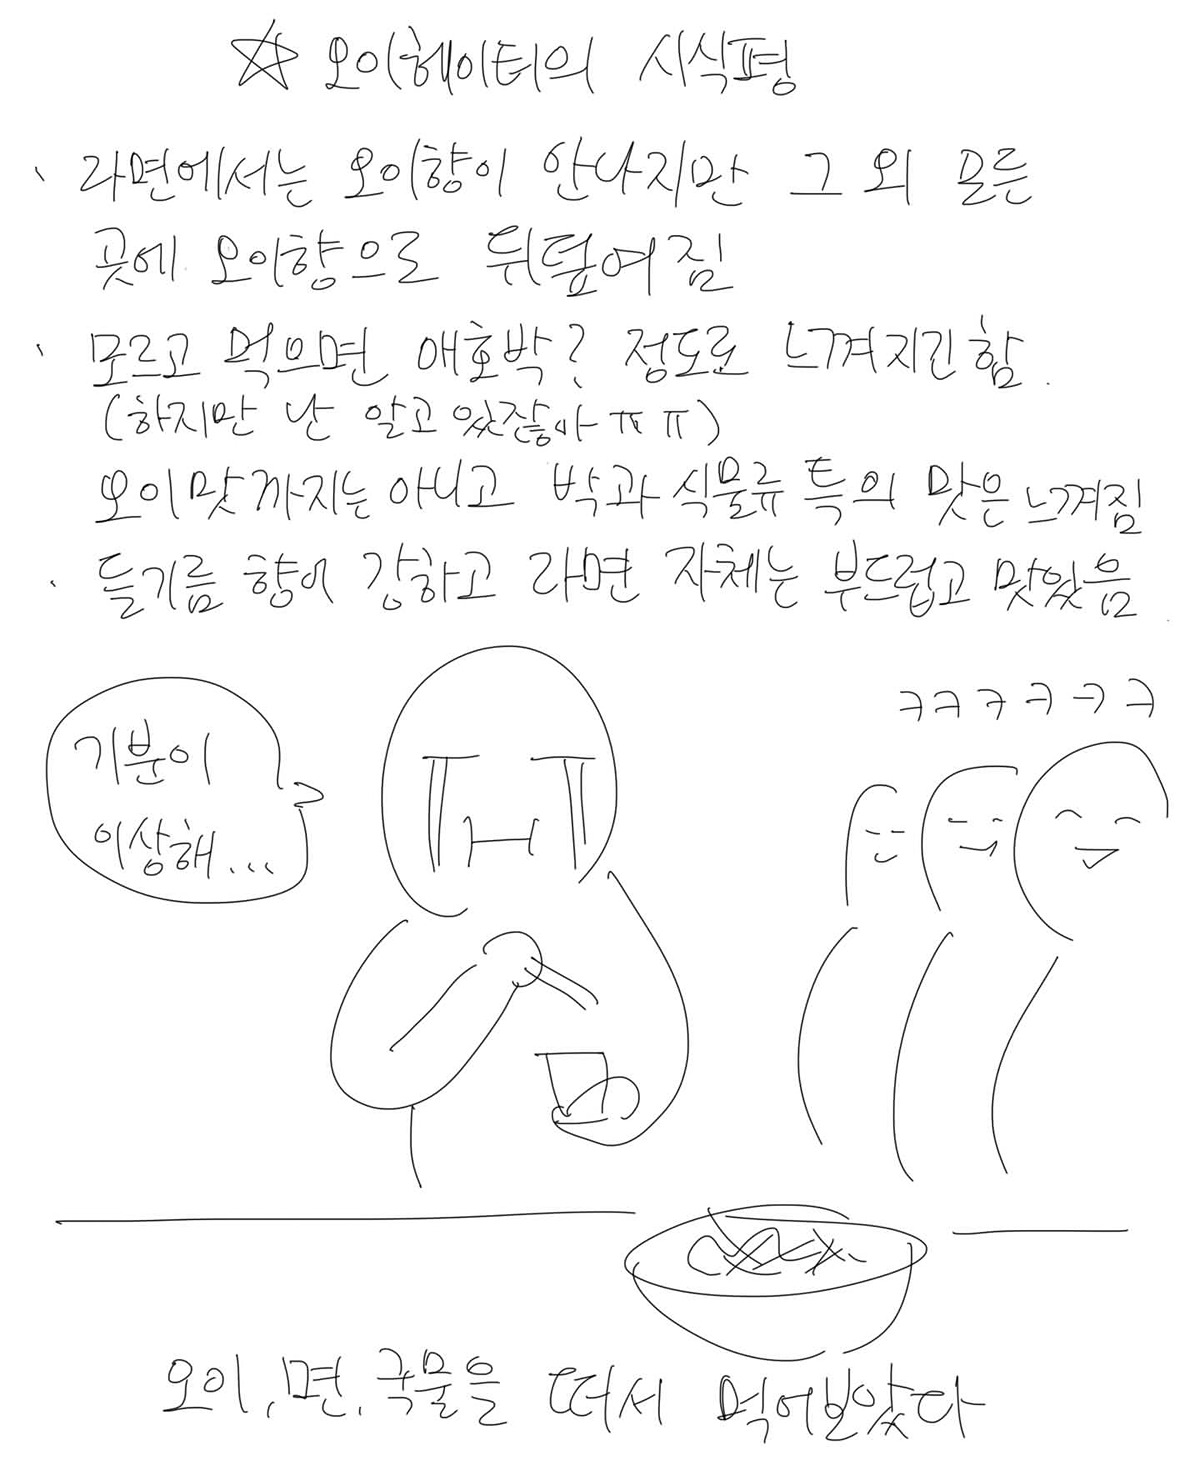 ☆ 오이헤이터의 시식평
· 라면에서는 오이향이 안나지만 그 외 모든
곳에 오이향으로 뒤덮여짐
· 모르고 먹으면 애호박? 정도로 느껴지긴함.
(하지만 난 알고있잖아ㅠㅠ)
오이맛까지는 아니고 박과 식물류 특의 맛은 느껴짐
· 들기름 향이 강하고 라면 자체는 부드럽고 맛있음
ㅋㅋㅋㅋㅋㅋ
기분이
이상해...
오이, 면, 국물을 떠서 먹어보았다